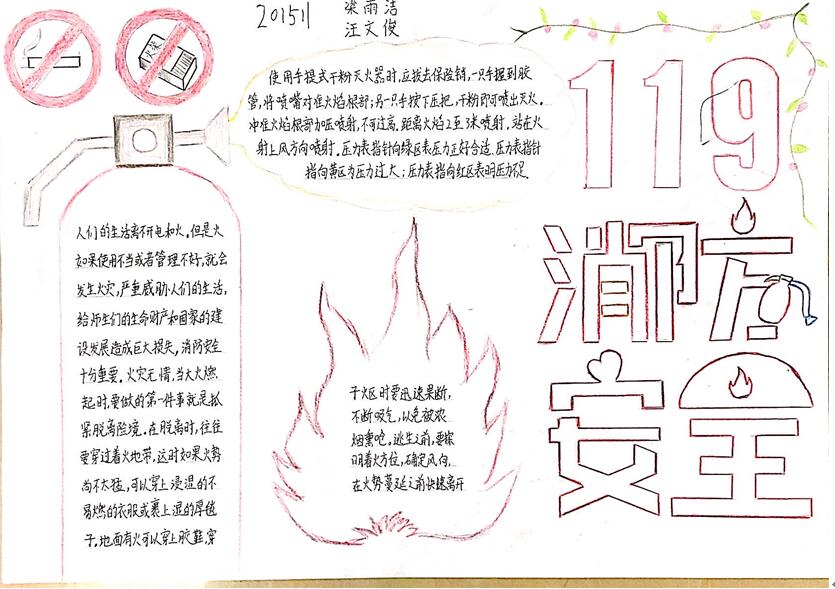 201511
梁雨洁
汪文俊
火柴
使用手提式干粉灭火器时,应拔去保险销,一只手握到胶
管,将喷嘴对准火焰根部;另一只手按下压把,干粉即可喷出灭火.
冲准火焰根部加压喷射,不可过高,距离火焰2至3米喷射,站在火
射上风方向喷射.压力表指针向绿区表压力正好合适.压力表指针
指向黄区为压力过大;压力表指向红区表明压力不足.
119
消防
安全
人们的生活离不开电和火.但是火
如果使用不当或者管理不好,就会
发生火灾,严重威胁人们的生活,
给师生们的生命财产和国家的建
设发展造成巨大损失,消防安全
十分重要.火灾无情,当大火燃
起时,要做的第一件事就是抓
紧脱离险境.在脱离时,往往
要穿过着火地带,这时如果火势
尚不太猛,可以穿上浸湿的不
易燃的衣服或裹上湿的厚毯
子.地面有火可以穿上胶鞋,穿
于火区时要迅速果断,
不断吸气,以免被浓
烟熏呛,逃生之前,要探
明着火方位,确定风向,
在火势蔓延之前快速离开